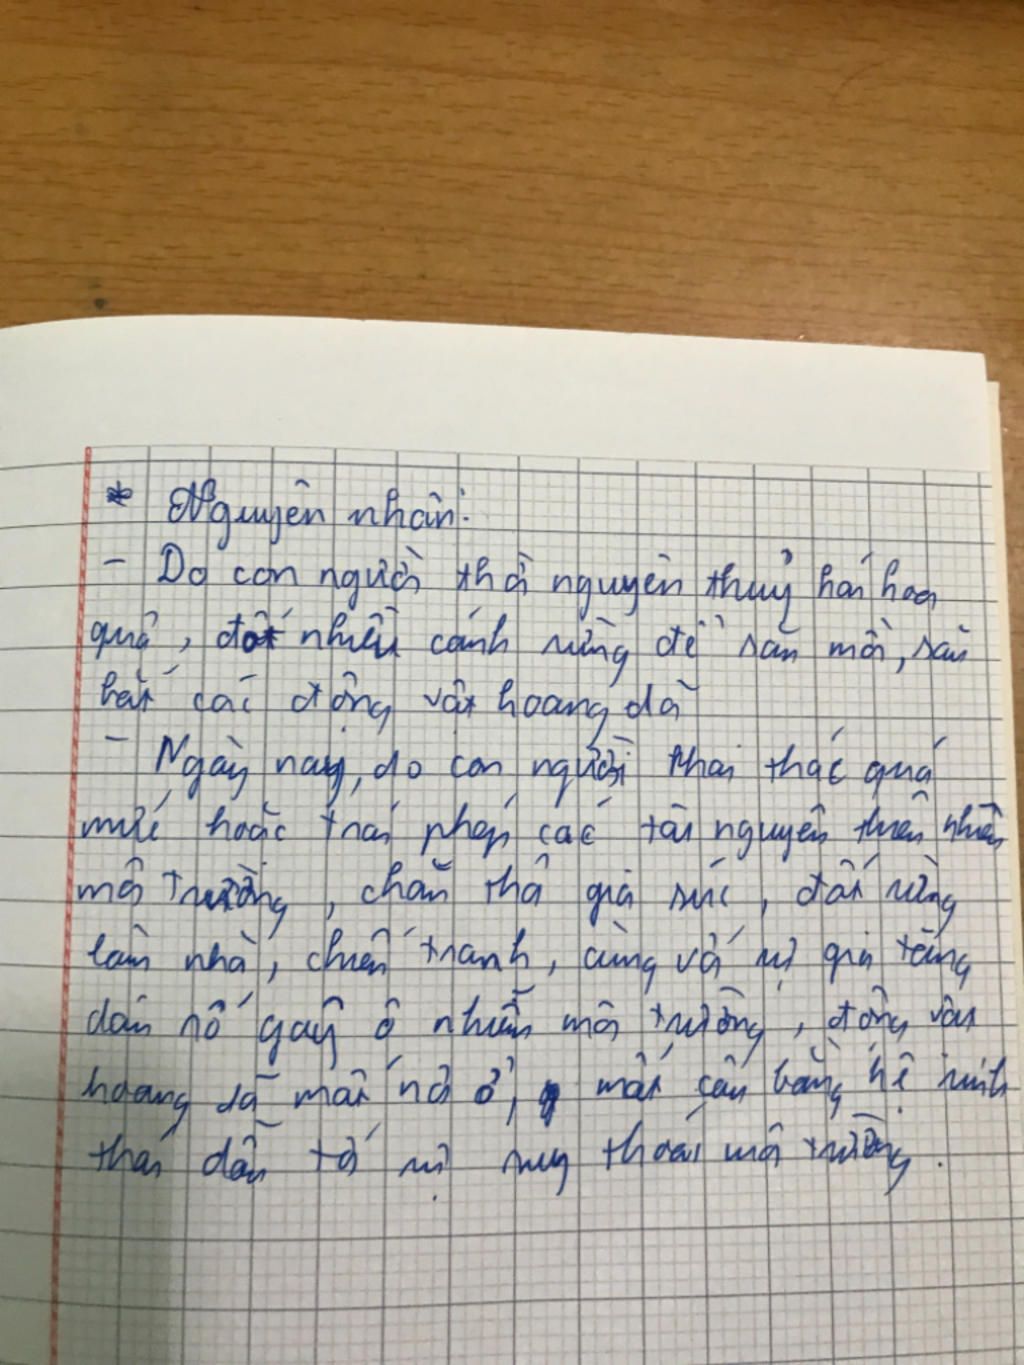 * Nguyên nhân:
- Do con người thời nguyên thuỷ hái hoa
quả, đốt nhiều cánh rừng để săn mồi, săn
bắt các động vật hoang dã
- Ngày nay, do con người khai thác quá
mức hoặc trái phép các tài nguyên thiên nhiên
môi trường, chăn thả gia súc, đất rừng
làm nhà, chiến tranh, cùng với sự gia tăng
dân số gây ô nhiễm môi trường, động vật
hoang dã mất nơi ở, mất cân bằng hệ sinh
thái dẫn tới sự suy thoái môi trường.